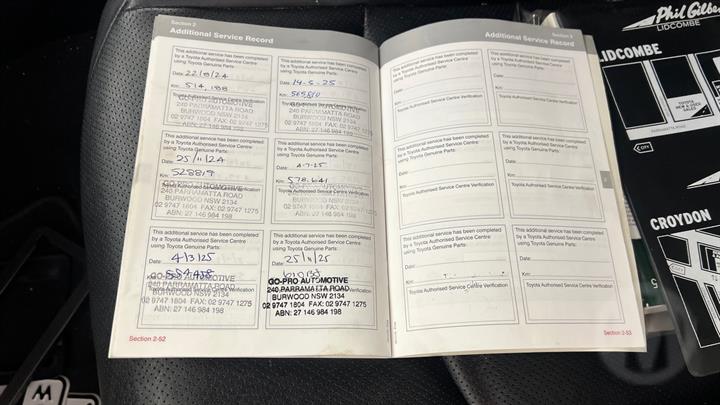 Section 2
Additional Service Record
This additional service has been completed
by a Toyota Authorised Service Centre
using Toyota Genuine Parts:
Date: 22/8/24
Km: 514,188
Toyota Authorised Service Centre Verification
GO-PRO AUTOMOTIVE
240 PARRAMATTA ROAD
BURWOOD NSW 2134
02 9747 1804 FAX: 02 9747 1275
ABN: 27 146 984 198
This additional service has been completed
by a Toyota Authorised Service Centre
using Toyota Genuine Parts:
Date: 14-5-25
Km:
Toyota Authorised Service Centre Verification
GO-PRO AUTOMOTIVE
240 PARRAMATTA ROAD
BURWOOD NSW 2134
02 9747 1804 FAX: 02 9747 1275
ABN: 27 146 984 198
This additional service has been completed
by a Toyota Authorised Service Centre
using Toyota Genuine Parts:
Date: 25/11/24
Km: 528819
Toyota Authorised Service Centre Verification
GO-PRO AUTOMOTIVE
240 PARRAMATTA ROAD
BURWOOD NSW 2134
02 9747 1804 FAX: 02 9747 1275
ABN: 27 146 984 198
This additional service has been completed
by a Toyota Authorised Service Centre
using Toyota Genuine Parts:
Date: 4-7-25
Km: 578.641
Toyota Authorised Service Centre Verification
GO-PRO AUTOMOTIVE
240 PARRAMATTA ROAD
BURWOOD NSW 2134
02 9747 1804 FAX: 02 9747 1275
ABN: 27 146 984 198
This additional service has been completed
by a Toyota Authorised Service Centre
using Toyota Genuine Parts:
Date: 4/3/25
Km:
Toyota Authorised Service Centre Verification
GO-PRO AUTOMOTIVE
240 PARRAMATTA ROAD
BURWOOD NSW 2134
02 9747 1804 FAX: 02 9747 1275
ABN: 27 146 984 198
This additional service has been completed
by a Toyota Authorised Service Centre
using Toyota Genuine Parts:
Date: 25/11/25
GO-PRO AUTOMOTIVE
240 PARRAMATTA ROAD
BURWOOD NSW 2134
02 9747 1804 FAX: 02 9747 1275
ABN: 27 146 984 198
Section 2-52
Section 2
Additional Service Record
This additional service has been completed
by a Toyota Authorised Service Centre
using Toyota Genuine Parts:
Date:
Km:
Toyota Authorised Service Centre Verification
This additional service has been completed
by a Toyota Authorised Service Centre
using Toyota Genuine Parts:
Date:
Km:
Toyota Authorised Service Centre Verification
This additional service has been completed
by a Toyota Authorised Service Centre
using Toyota Genuine Parts:
Date:
Km:
Toyota Authorised Service Centre Verification
This additional service has been completed
by a Toyota Authorised Service Centre
using Toyota Genuine Parts:
Date:
Km:
Toyota Authorised Service Centre Verification
This additional service has been completed
by a Toyota Authorised Service Centre
using Toyota Genuine Parts:
Date:
Km:
Toyota Authorised Service Centre Verification
This additional service has been completed
by a Toyota Authorised Service Centre
using Toyota Genuine Parts:
Date:
Km:
Toyota Authorised Service Centre Verification
Section 2-53
Phil Gilbe
LIDCOMBE
LIDCOMBE
TOYOTA
NEW & USED
SALES
PARRAMATTA ROAD
CITY
CROYDON